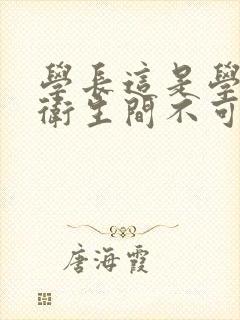 學長這是學
衛生間不可
唐海霞